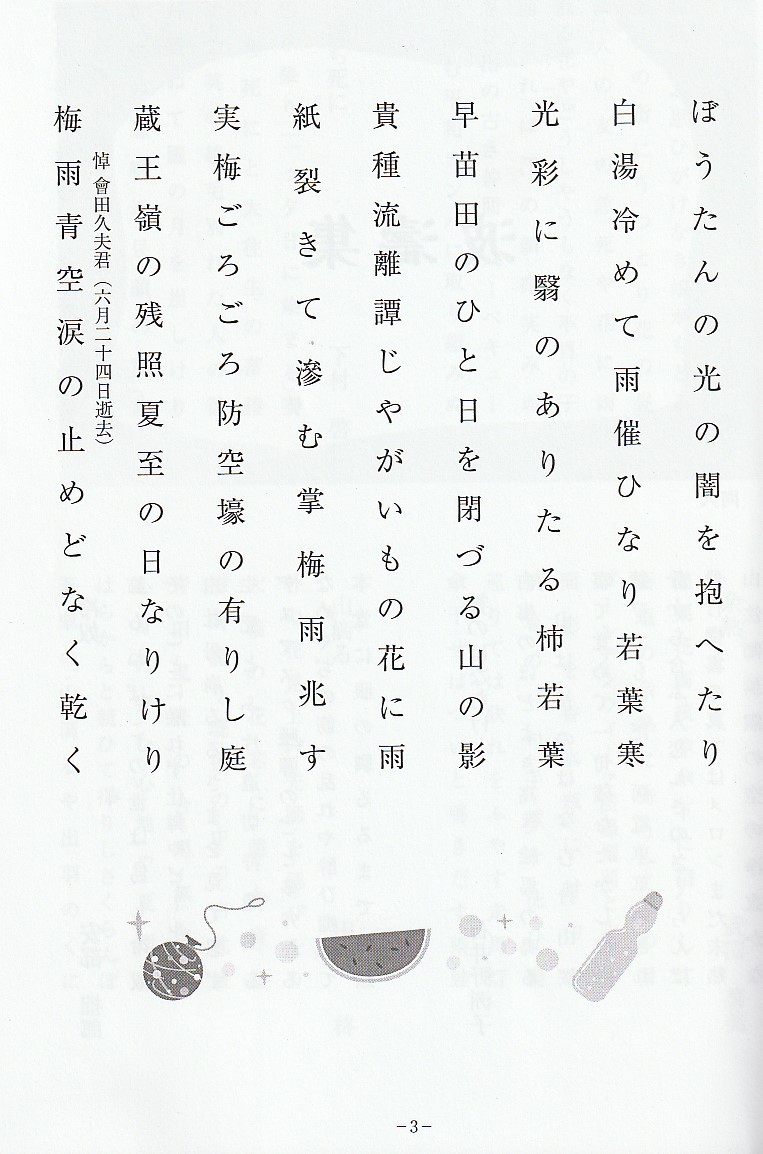 ぼうたんの光の闇を抱へたり
白湯冷めて雨催ひなり若葉寒
光彩に翳のありたる柿若葉
早苗田のひと日を閉づる山の影
貴種流離譚じやがいもの花に雨
紙裂きて滲む掌梅雨兆す
実梅ごろごろ防空壕の有りし庭
蔵王嶺の残照夏至の日なりけり
悼 會田久夫君（六月二十四日逝去）
梅雨青空涙の止めどなく乾く
−3−